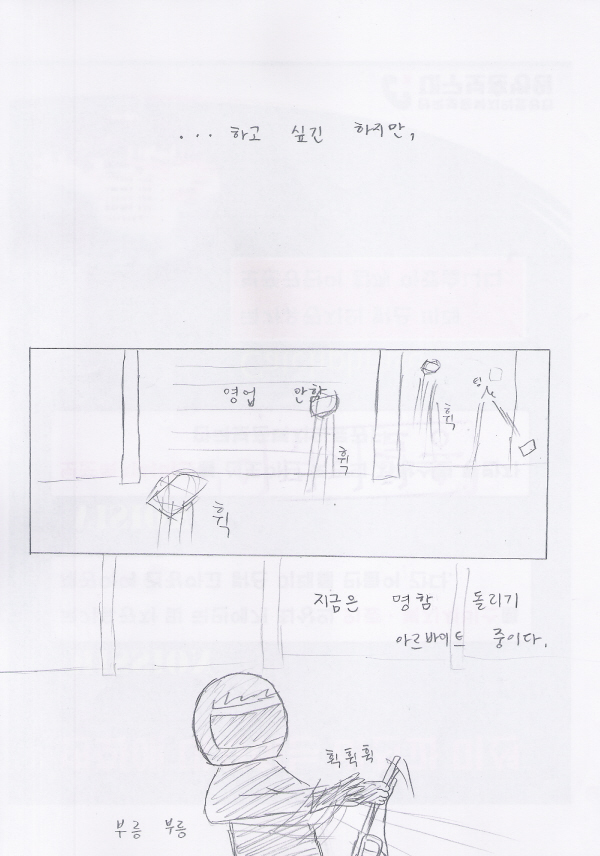 ... 하고 싶긴 하지만,
영업 안함
휙
휙
휙
지금은 명함 돌리기
아르바이트 중이다.
휙휙휙
부릉 부릉